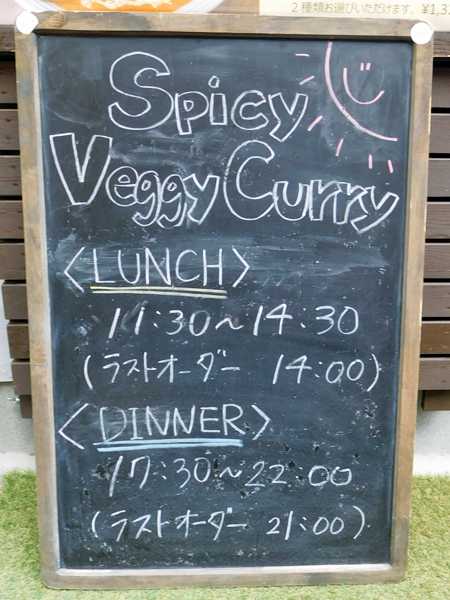 2種類お選びいただけます。 ¥1,3
Spicy
Veggy Curry
<LUNCH>
11:30~14:30
(ラストオーダー 14:00)
<DINNER>
17:30~22:00
(ラストオーダー 21:00)